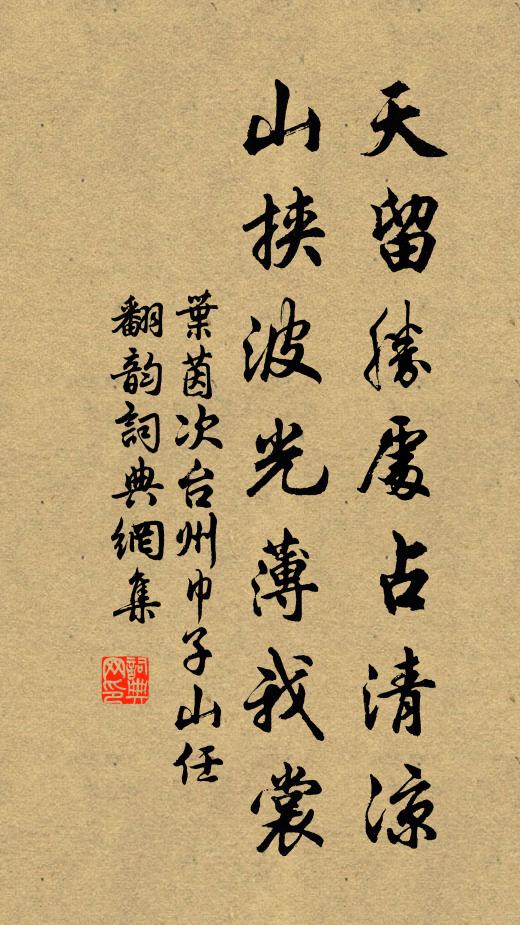 天留勝處占清涼
山挾波光薄我裳
葉茵次台州巾子山任
翻韵詞典網集
詞典网印